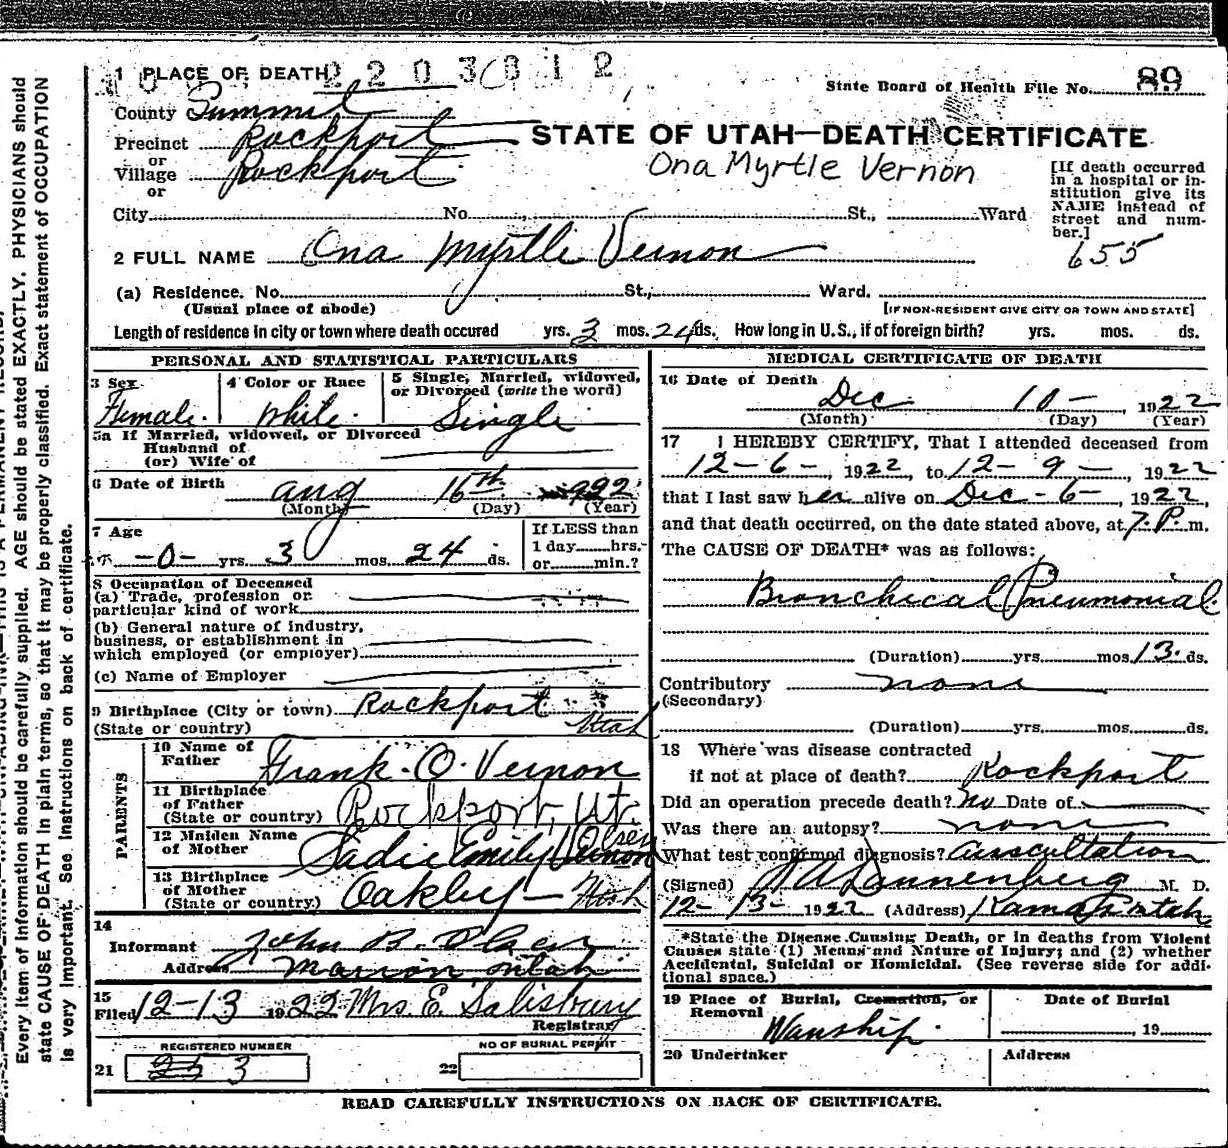 1 PLACE OF DEATH
State Board of Health File No. 89
County Summit
Precinct Rockport
STATE OF UTAH—DEATH CERTIFICATE
or
Village Rockport
or
Ona Myrtle Vernon
[If death occurred in a hospital or institution give its NAME instead of street and number.]
City No. St., Ward
655
2 FULL NAME Ona Myrtle Vernon
(a) Residence. No. St., Ward.
(Usual place of abode) [IF NON-RESIDENT GIVE CITY OR TOWN AND STATE]
Length of residence in city or town where death occured yrs. 3 mos. 24 ds. How long in U.S., if of foreign birth? yrs. mos. ds.
PERSONAL AND STATISTICAL PARTICULARS
3 Sex Female.
4 Color or Race White.
5 Single, Married, widowed, or Divorced (write the word) Single
5a If Married, widowed, or Divorced
Husband of
(or) Wife of
6 Date of Birth Aug 16th 1922
(Month) (Day) (Year)
7 Age
-0- yrs. 3 mos. 24 ds.
If LESS than
1 day hrs.
or min.?
8 Occupation of Deceased
(a) Trade, profession or
particular kind of work
(b) General nature of industry,
business, or establishment in
which employed (or employer)
(c) Name of Employer
9 Birthplace (City or town) Rockport
(State or country) Utah
PARENTS
10 Name of
Father Frank. O. Vernon
11 Birthplace
of Father
(State or country) Rockport, Ut.
12 Maiden Name
of Mother Sadie Emily Vernon Olsen
13 Birthplace
of Mother
(State or country) Oakley - Utah
14
Informant John B. Olsen
Address Marion Utah
15
Filed 12-13 1922 Mrs E. Salisbury
Registrar
REGISTERED NUMBER
NO OF BURIAL PERMIT
21 25 3
22
MEDICAL CERTIFICATE OF DEATH
16 Date of Death Dec 10- 1922
(Month) (Day) (Year)
17 I HEREBY CERTIFY, That I attended deceased from
12-6-, 1922, to 12-9-, 1922
that I last saw her alive on Dec-6-, 1922,
and that death occurred, on the date stated above, at 7.P.m.
The CAUSE OF DEATH* was as follows:
Bronchical Pneumonial.
(Duration) yrs. mos. 13. ds.
Contributory none
(Secondary)
(Duration) yrs. mos. ds.
18 Where was disease contracted
if not at place of death? Rockport
Did an operation precede death? No Date of
Was there an autopsy? none
What test confirmed diagnosis? Auscultation
(Signed) M. D.
12-13-1922 (Address) Kamas Utah
*State the Disease Causing Death, or in deaths from Violent
Causes state (1) Means and Nature of Injury; and (2) whether
Accidental, Suicidal or Homicidal. (See reverse side for addi-
tional space.)
19 Place of Burial, Cremation, or
Removal Wanship.
Date of Burial
, 19
20 Undertaker
Address
READ CAREFULLY INSTRUCTIONS ON BACK OF CERTIFICATE.
Every item of information should be carefully supplied. AGE should be stated EXACTLY. PHYSICIANS should
state CAUSE OF DEATH in plain terms, so that it may be properly classified. Exact statement of OCCUPATION
is very important. See instructions on back of certificate.